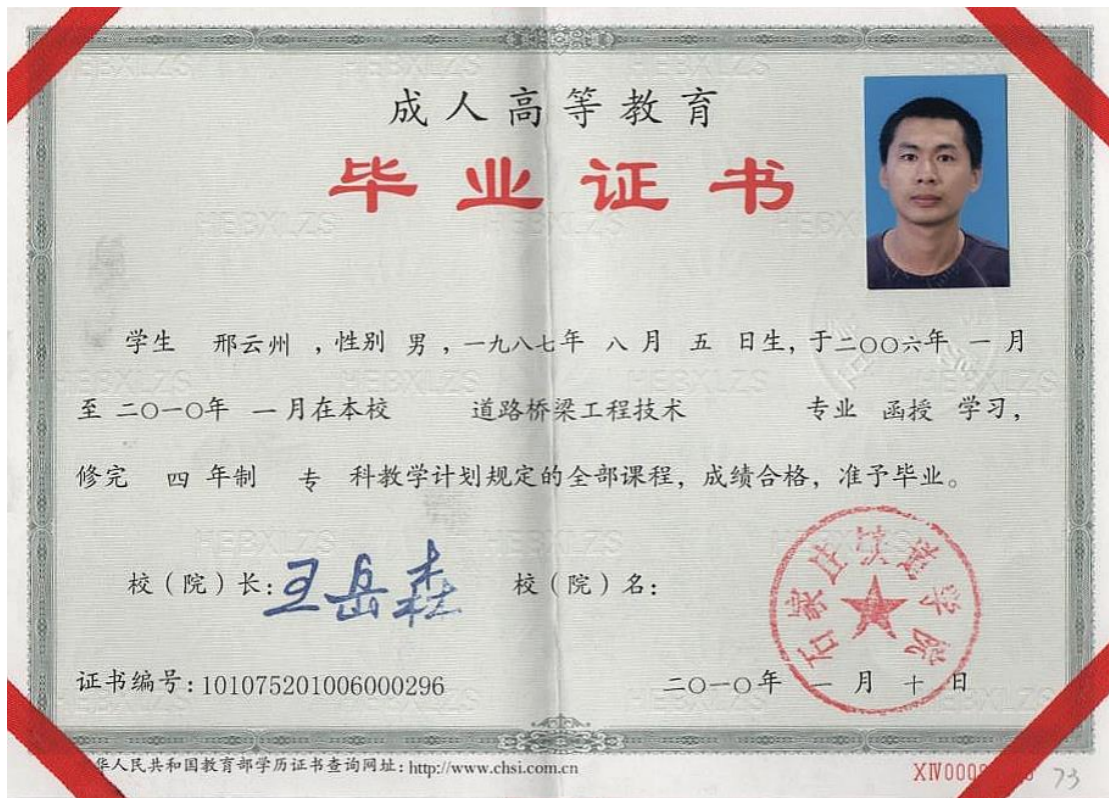 成人高等教育
毕业证书
学生 邢云州 ，性别 男 ，一九八七年 八 月 五 日生，于二〇〇六年 一 月
至 二〇一〇年 一 月在本校 道路桥梁工程技术 专业 函授 学习，
修完 四 年制 专 科教学计划规定的全部课程，成绩合格，准予毕业。
校（院）长：王岳森 校（院）名：
石家庄铁道学院
证书编号：101075201006000296
二〇一〇年 一 月 十 日
华人民共和国教育部学历证书查询网址：http://www.chsi.com.cn
73
HEBXLZS